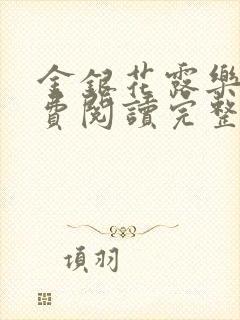 金銀花露樂
費閱讀完整
項羽